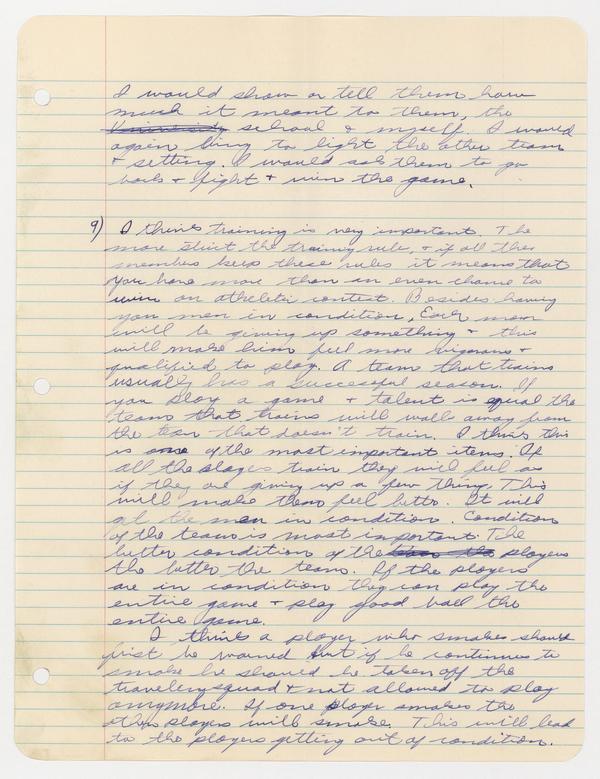 I would show or tell them how
much it meant to them, the
University school & myself. I would
again bring to light the other team
& setting. I would ask them to go
back & fight & win the game.
9) I think training is very important. The
more strict the training rule, & if all the
members keep these rules it means that
you have more than an even chance to
win an athletic contest. Besides having
you men in condition, Each man
will be giving up something & this
will make him feel more vigorous &
qualified to play. A team that trains
usually has a successful season. If
you play a game & talent is equal the
team that trains will walk away from
the team that doesn't train. I think this
is one of the most important items. If
all the players train they will feel as
if they are giving up a few thing. This
will make them feel better. It will
get the men in condition. Condition
of the team is most important. The
better condition of the players
the better the team. If the players
are in condition they can play the
entire game & play good ball the
entire game.
I think a player who smokes should
first be warned but if he continues to
smoke he should be taken off the
traveling squad & not allowed to play
anymore. If one player smokes the
other players will smoke. This will lead
to the players getting out of condition.